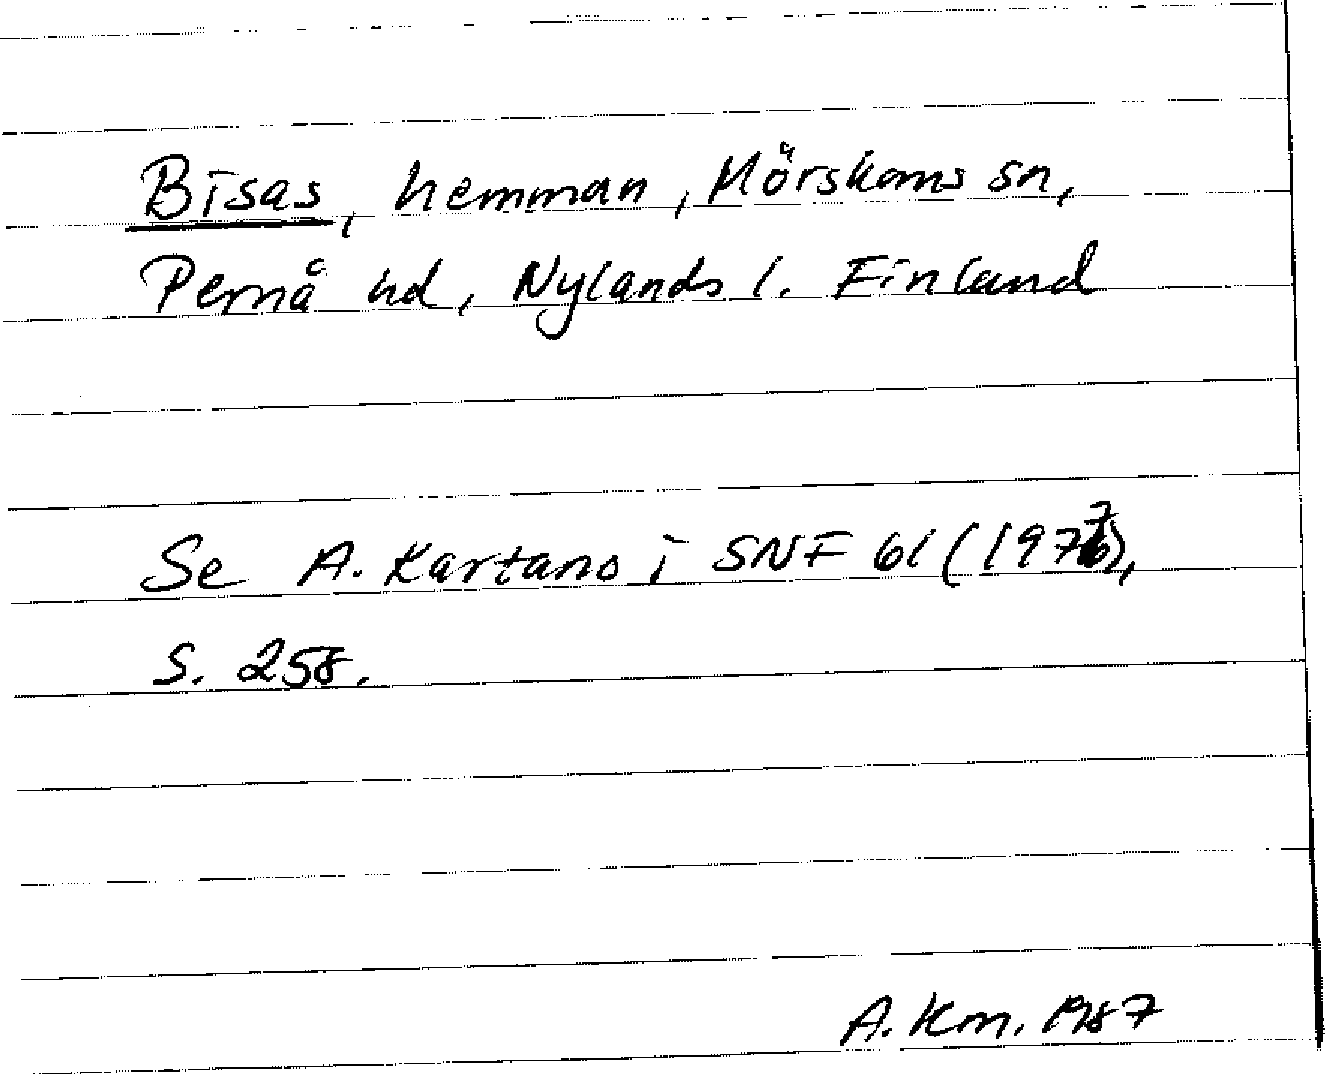 Bisas, hemman, Mörskoms sn,
Pernå hd, Nylands l. Finland
Se A. Kartano i SNF 61 (1977),
s. 258.
A. Km. 1987